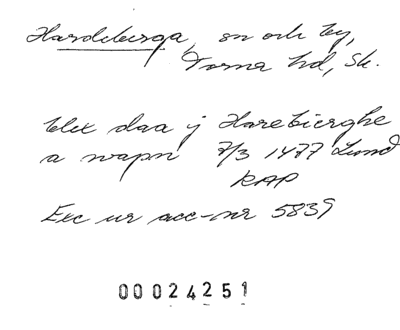 Hardeberga, sn och by,
Torna hd, Sk.
blix daa j Harebierghe
a wapn 7/3 1477 Lund
RAP
Exc ur acc-nr 5839
00024251